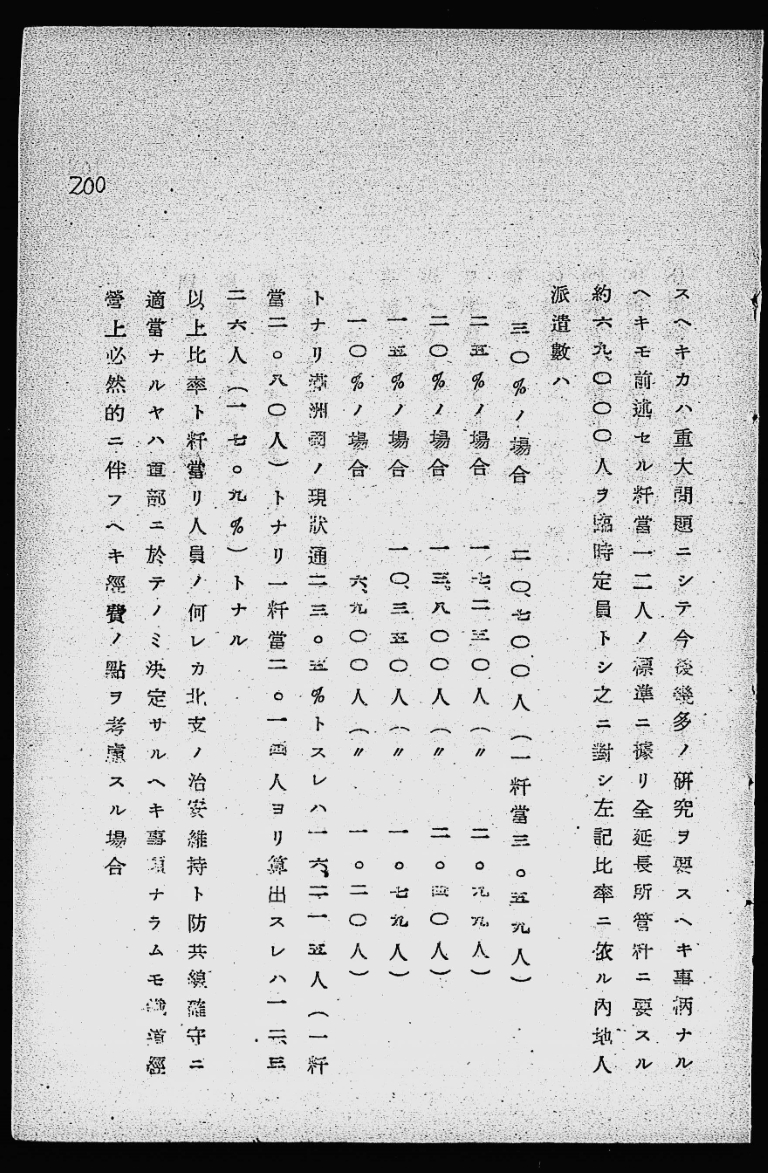 200
スヘキカハ重大問題ニシテ今後幾多ノ研究ヲ要スヘキ事柄ナル
ヘキモ前述セル粁當一二人ノ標準ニ據リ全延長所管粁ニ要スル
約六九、〇〇〇人ヲ臨時定員トシ之ニ對シ左記比率ニ依ル內地人
派遣數ハ
三〇%ノ場合 二〇、七〇〇人(一粁當三。五九人)
二五%ノ場合 一七、二五〇人(〃 二。九九人)
二〇%ノ場合 一三、八〇〇人(〃 二。四〇人)
一五%ノ場合 一〇、三五〇人(〃 一。七九人)
一〇%ノ場合 六、九〇〇人(〃 一。二〇人)
トナリ滿洲國ノ現狀通二三。五%トスレハ一六、二一五人(一粁
當二。八〇人)トナリ一粁當二。一四人ヨリ算出スレハ一二、三
二六人(一七。九%)トナル
以上比率ト粁當リ人員ノ何レカ北支ノ治安維持ト防共線確守ニ
適當ナルヤハ直部ニ於テノミ決定サルヘキ事項ナラムモ鐵道經
營上必然的ニ伴フヘキ經費ノ點ヲ考慮スル場合